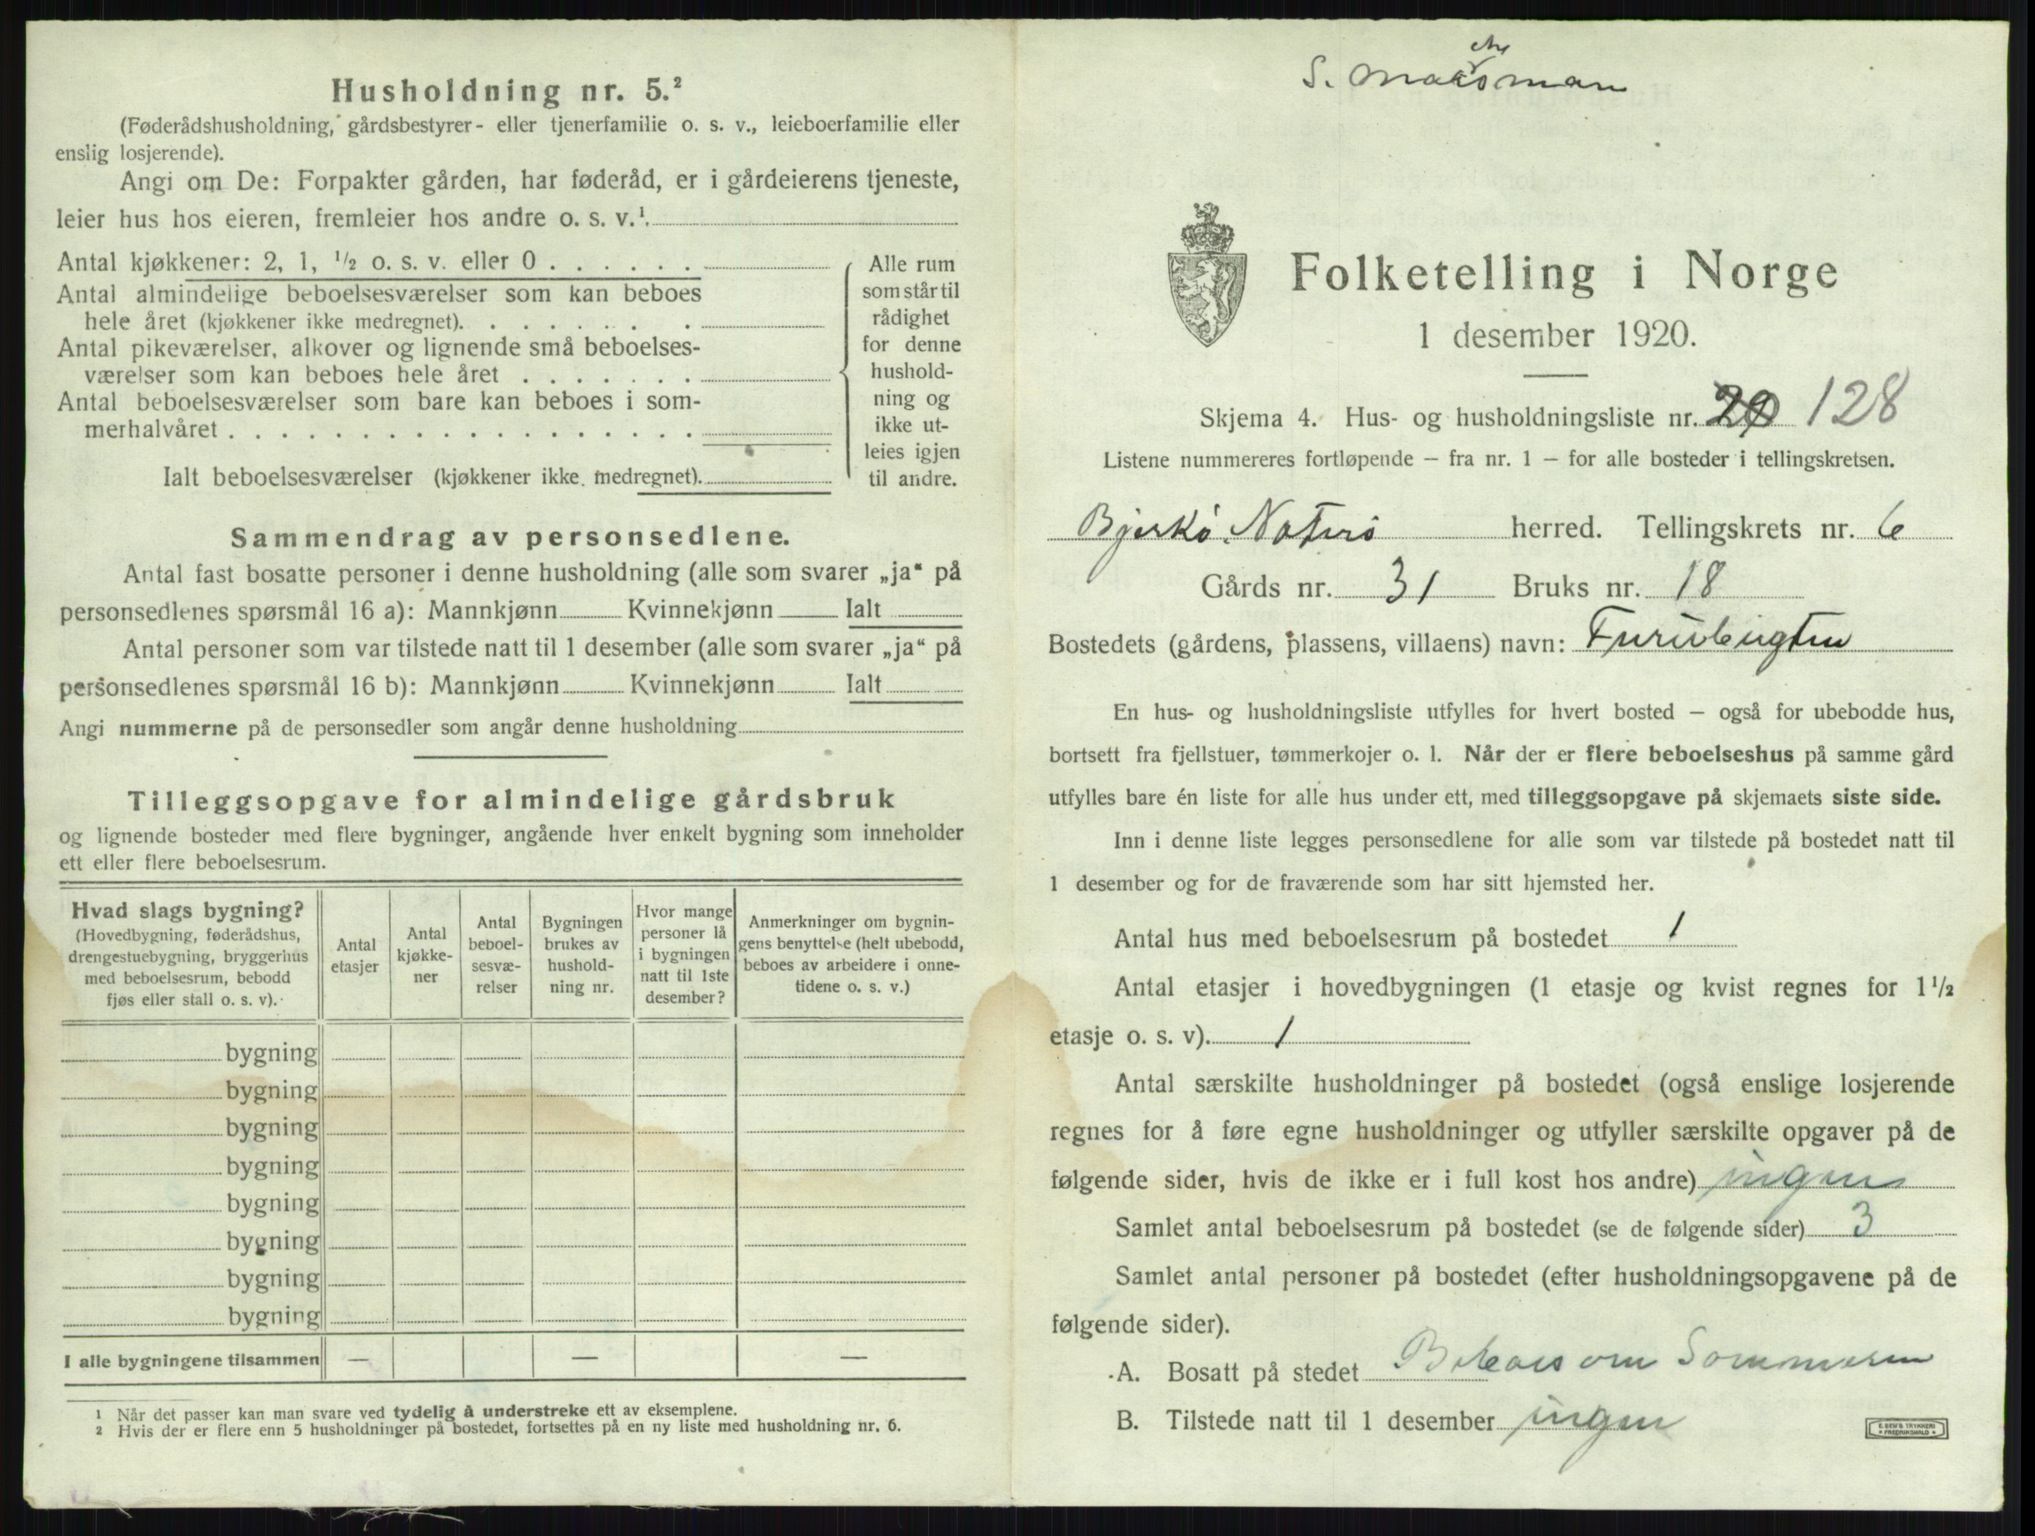 Husholdning nr. 5.²
(Føderådshusholdning, gårdsbestyrer- eller tjenerfamilie o. s. v., leieboerfamilie eller
enslig losjerende).
Angi om De: Forpakter gården, har føderåd, er i gårdeierens tjeneste,
leier hus hos eieren, fremleier hos andre o. s. v.¹.
Antal kjøkkener: 2, 1, ½ o. s. v. eller 0 . . . . . .
Antal almindelige beboelsesværelser som kan beboes
hele året (kjøkkener ikke medregnet). . . . . . . .
Antal pikeværelser, alkover og lignende små beboelses-
værelser som kan beboes hele året . . . . . . .
Antal beboelsesværelser som bare kan beboes i som-
merhalvåret . . . . . . . . . . . . . . . . . .
Ialt beboelsesværelser (kjøkkener ikke medregnet).
Alle rum
som står til
rådighet
for denne
hushold-
ning og
ikke ut-
leies igjen
til andre.
Sammendrag av personsedlene.
Antal fast bosatte personer i denne husholdning (alle som svarer „ja“ på
personsedlenes spørsmål 16 a): Mannkjønn Kvinnekjønn Ialt
Antal personer som var tilstede natt til 1 desember (alle som svarer „ja“ på
personsedlenes spørsmål 16 b): Mannkjønn Kvinnekjønn Ialt
Angi nummerne på de personsedler som angår denne husholdning
Tilleggsopgave for almindelige gårdsbruk
og lignende bosteder med flere bygninger, angående hver enkelt bygning som inneholder
ett eller flere beboelsesrum.
Hvad slags bygning?
(Hovedbygning, føderådshus,
drengestuebygning, bryggerhus
med beboelsesrum, bebodd
fjøs eller stall o. s. v).
Antal
etasjer
Antal
kjøkke-
ner
Antal
beboel-
sesvæ-
relser
Bygningen
brukes av
hushold-
ning nr.
Hvor mange
personer lå
i bygningen
natt til 1ste
desember?
Anmerkninger om bygnin-
gens benyttelse (helt ubebodd,
beboes av arbeidere i onne-
tidene o. s. v.)
bygning
bygning
bygning
bygning
bygning
bygning
bygning
bygning
I alle bygningene tilsammen — — —
¹ Når det passer kan man svare ved tydelig å understreke ett av eksemplene.
² Hvis der er flere enn 5 husholdninger på bostedet, fortsettes på en ny liste med husholdning nr. 6.
S.
Folketelling i Norge
1 desember 1920.
Skjema 4. Hus- og husholdningsliste nr. 128
Listene nummereres fortløpende — fra nr. 1 — for alle bosteder i tellingskretsen.
Bjerkø. Noterø herred. Tellingskrets nr. 6
Gårds nr. 31 Bruks nr. 18
Bostedets (gårdens, plassens, villaens) navn:
En hus- og husholdningsliste utfylles for hvert bosted — også for ubebodde hus,
bortsett fra fjellstuer, tømmerkojer o. l. Når der er flere beboelseshus på samme gård
utfylles bare én liste for alle hus under ett, med tilleggsopgave på skjemaets siste side.
Inn i denne liste legges personsedlene for alle som var tilstede på bostedet natt til
1 desember og for de fraværende som har sitt hjemsted her.
Antal hus med beboelsesrum på bostedet 1
Antal etasjer i hovedbygningen (1 etasje og kvist regnes for 1½
etasje o. s. v). 1
Antal særskilte husholdninger på bostedet (også enslige losjerende
regnes for å føre egne husholdninger og utfyller særskilte opgaver på de
følgende sider, hvis de ikke er i full kost hos andre) ingen
Samlet antal beboelsesrum på bostedet (se de følgende sider) 3
Samlet antal personer på bostedet (efter husholdningsopgavene på de
følgende sider).
A. Bosatt på stedet Beboes om Sommeren
B. Tilstede natt til 1 desember ingen